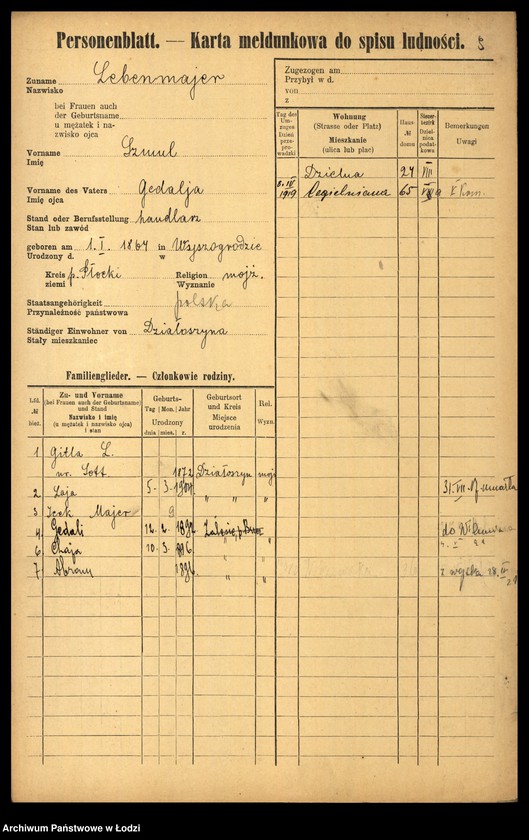 Personenblatt. — Karta meldunkowa do spisu ludności. 5
Zuname Lebenmajer
Nazwisko
bei Frauen auch
der Geburtsname
u mężatek i na-
zwisko ojca
Vorname Szmul
Imię
Vorname des Vaters Gedalja
Imię ojca
Stand oder Berufsstellung handlarz
Stan lub zawód
geboren am 1. I. 1864 in Wyszogrodzie
Urodzony d. w
Kreis p. Płocki Religion mojż.
ziemi Wyznanie
Staatsangehörigkeit polska
Przynależność państwowa
Ständiger Einwohner von Działoszyna
Stały mieszkaniec
Zugezogen am
Przybył w d.
von
z
Tag der Um-zuges Dzień prze-prowadzki
Wohnung (Strasse oder Platz) Mieszkanie (ulica lub plac)
Haus-№ domu
Steuer-bezirk Dziel-nica podat-kowa
Bemerkungen Uwagi
Dzielna 24 VII
8. IV 1919 Cegielniana 65 VIII V Kom.
Familienglieder. — Członkowie rodziny.
Lfd. № bież.
Zu- und Vorname (bei Frauen auch der Geburtsname) und Stand Nazwisko i imię (u mężatek i nazwisko ojca) i stan
Geburts- Tag Mon. Jahr Urodzony dnia mies. r.
Geburtsort und Kreis Miejsce urodzenia
Rel. Wyzn.
1 Gitla L.
ur. Sott 1872 Działoszyn mojż
2 Łaja 5. 3. 1904 " " " 31. VII. umarła
3 Icek Majer 9
4 Gedali 12. 2. 1892 do
6 Chaja 10. 3. 896 " "
7 Abram 1896. " " z wojska 28. IV
Archiwum Państwowe w Łodzi